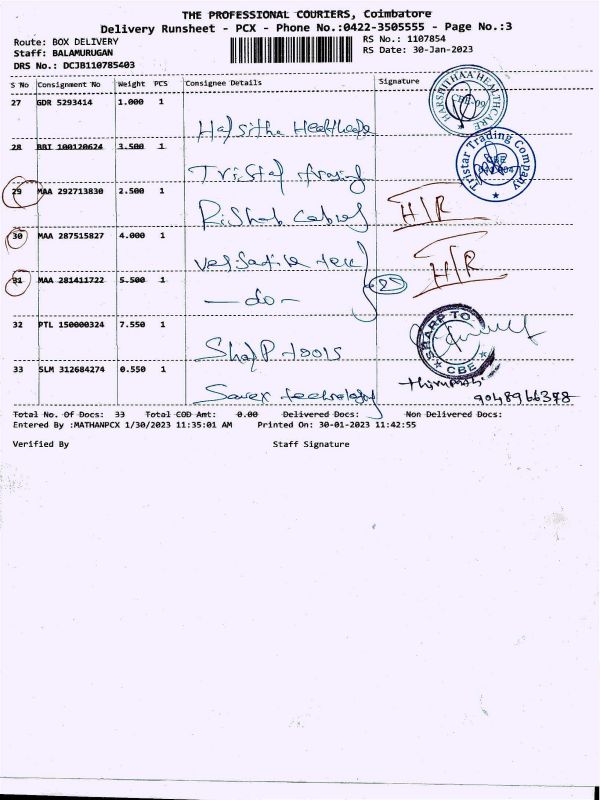 THE PROFESSIONAL COURIERS, Coimbatore
Delivery Runsheet - PCX - Phone No.:0422-3505555 - Page No.:3
Route: BOX DELIVERY
RS No.: 1107854
Staff: BALAMURUGAN
RS Date: 30-Jan-2023
DRS No.: DCJB110785403
S No Consignment No Weight PCS Consignee Details Signature
27 GDR 5293414 1.000 1
Harsitha Healthcare
HARSHITHAA HEALTHCARE
CBE-09
28 BBI 100120624 3.500 1
Tristar
Tristar Trading Company
29 MAA 292713830 2.500 1
Rishab
H/R
30 MAA 287515827 4.000 1
Versatile tek
H/R
31 MAA 281411722 5.500 1
- do -
32 PTL 150000324 7.550 1
Sharp tools
SHARP TO
CBE
33 SLM 312684274 0.550 1
Savex technology
9048966378
Total No. Of Docs: 33 Total COD Amt: 0.00 Delivered Docs: Non Delivered Docs:
Entered By :MATHANPCX 1/30/2023 11:35:01 AM Printed On: 30-01-2023 11:42:55
Verified By Staff Signature